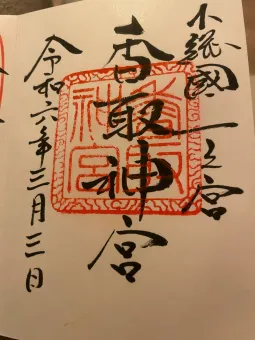 下総國一之宮
香取神宮
香取
神宮
令和六年三月三日